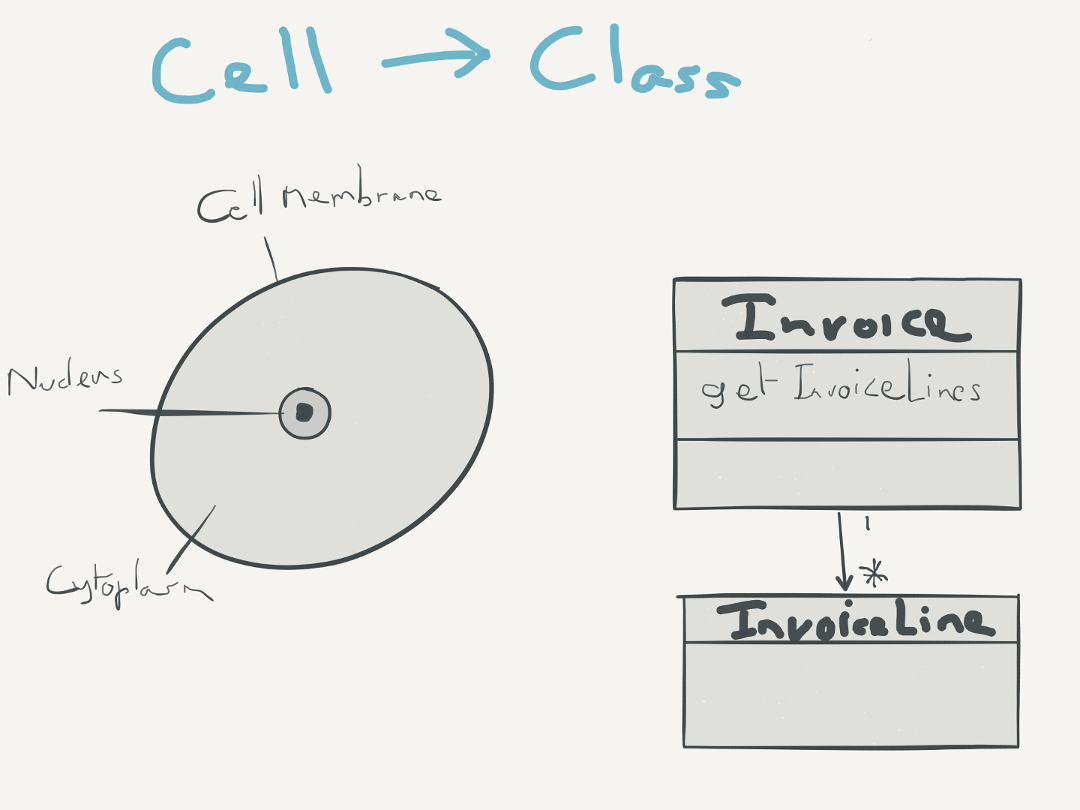 Cell → Class
Cell Membrane
Nucleus
Cytoplasm
Invoice
getInvoiceLines
1
*
InvoiceLine